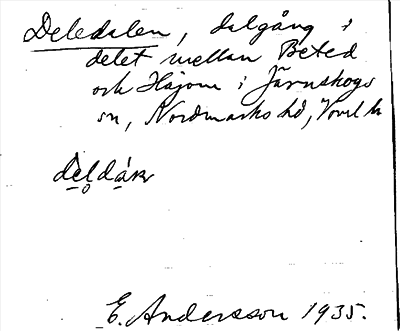 Deledalen, dalgång i
delet mellan Beted
och Häjom i Järnskogs
sn, Nordmarks hd, Vrml. ln
deldáɳ
E. Andersson 1935.